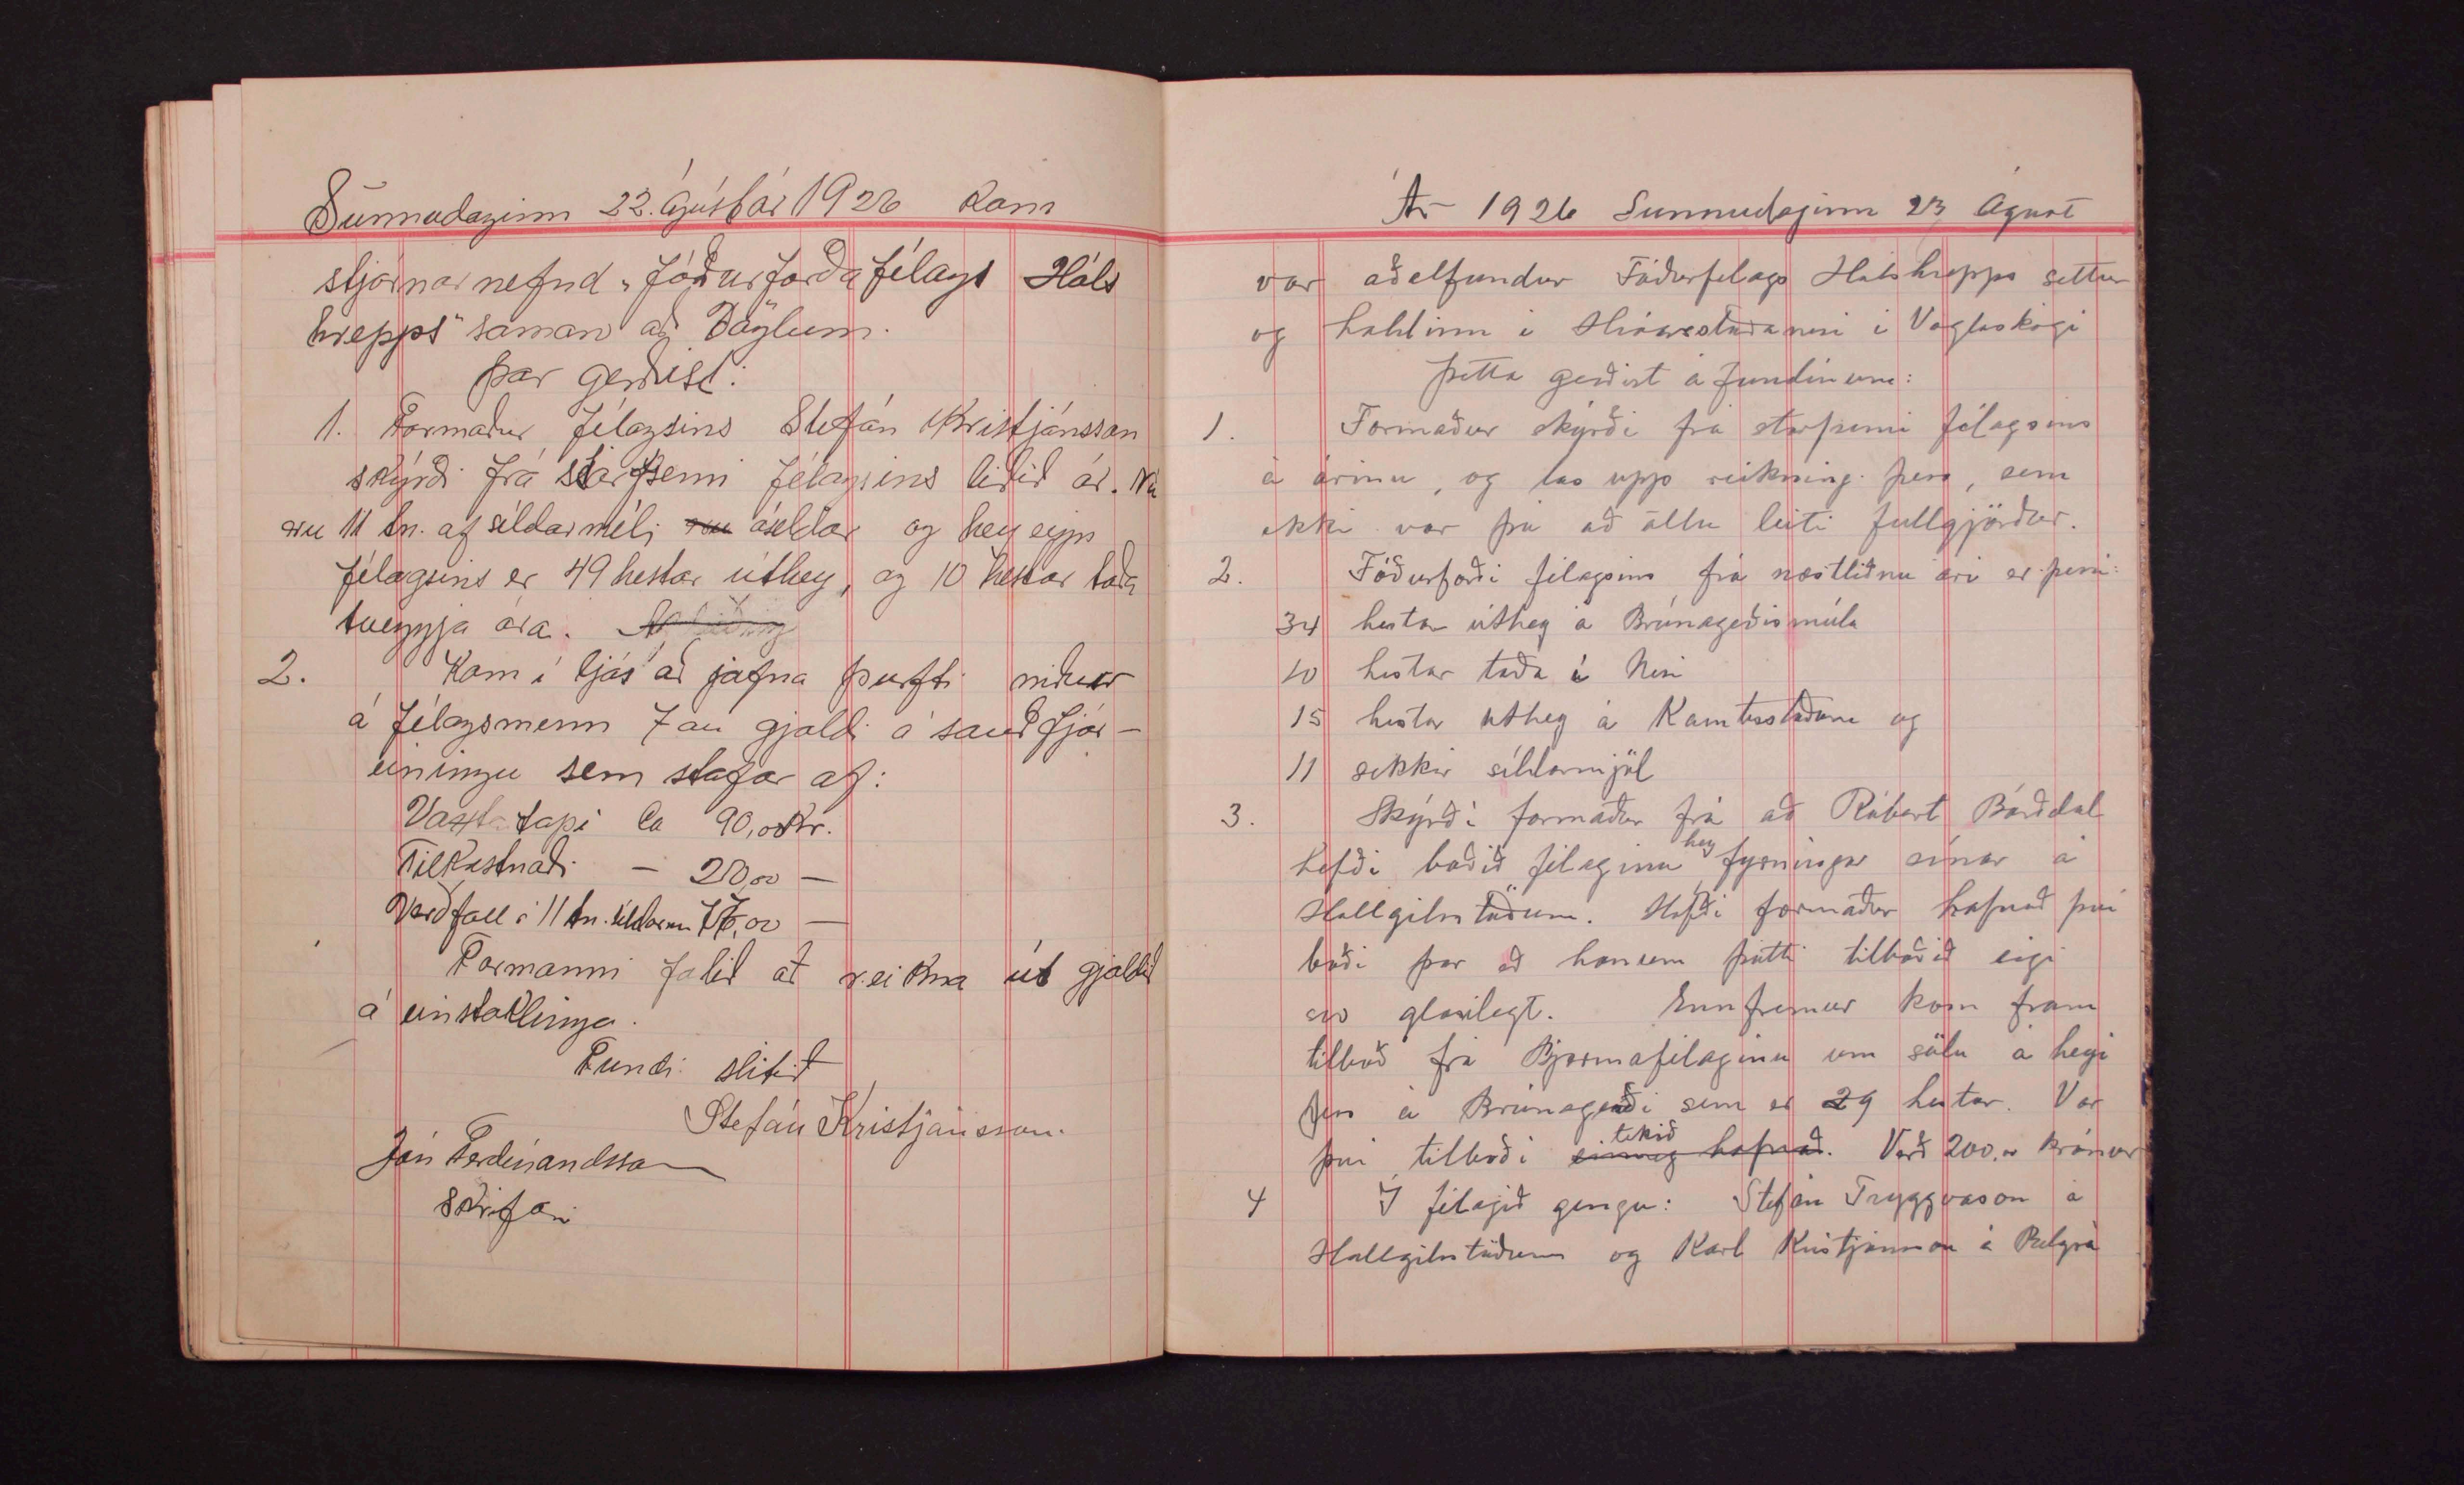 Sunnudaginn 22. ágúst ár 1926 kom
stjórnarnefnd „Fóðurforðafélags Háls
hrepps" saman að Vöglum.
Þar gerðist:
1. Formaður félagsins Stefán Kristjánsson
skýrði frá starfsemi félagsins liðið ár. Nú
eru 11 tn. af síldarméli óseldar og hey eign
félagsins er 49 hestar úthey, og 10 hestar taða
tveggja ára.
2. Kom í ljós að jafna þurfti niður
á félagsmenn 7 au gjaldi á sauðfjár-
einingu sem stafar af:
Vaxtatapi Ca 90,00 Kr.
Tilkostnaði - 20,00 -
Verðfall á 11 tn. 77,00 -
Formanni falið að reikna út gjaldið
á einstaklinga.
Fundi slitið
Stefán Kristjánsson.
Jón Ferdínandsson
skrifari
Ár 1926 Sunnudaginn 23 Águst
var aðalfundur Fóðurfelags Hálshrepps settur
og haldinn í Hróarsstaðanesi í Vaglaskógi
Þetta gerðist á fundinum:
1. Formaður skýrði frá starfsemi félagsins
á árinu, og las upp reikning þess, sem
ekki var þá að öllu leiti fullgjörður.
2. Fóðurforði félagsins frá næstliðnu ári er þessi:
34 hestar úthey á Brúnagerðismúla
10 hestar taða í Nesi
15 hestar úthey á Kambsstöðum og
11 sekkir síldarmjöl
3. Skýrði formaður frá að Róbert Bárðdal
hefði boðið félaginu hey fyrningar sínar á
Hallgilsstöðum. Hafði formaður hafnað því
boði þar eð honum þótti tilboðið eigi
svo glæsilegt. Ennfremur kom fram
tilboð frá Bjarmafélaginu um sölu á heyi
þess á Brúnagerði sem er 29 hestar. Var
því tilboði tekið einnig hafnað. Verð 200,00 krónur
4 Í félagið gengu: Stefán Tryggvason á
Hallgilsstöðum og Karl Kristjánsson á Belgsá